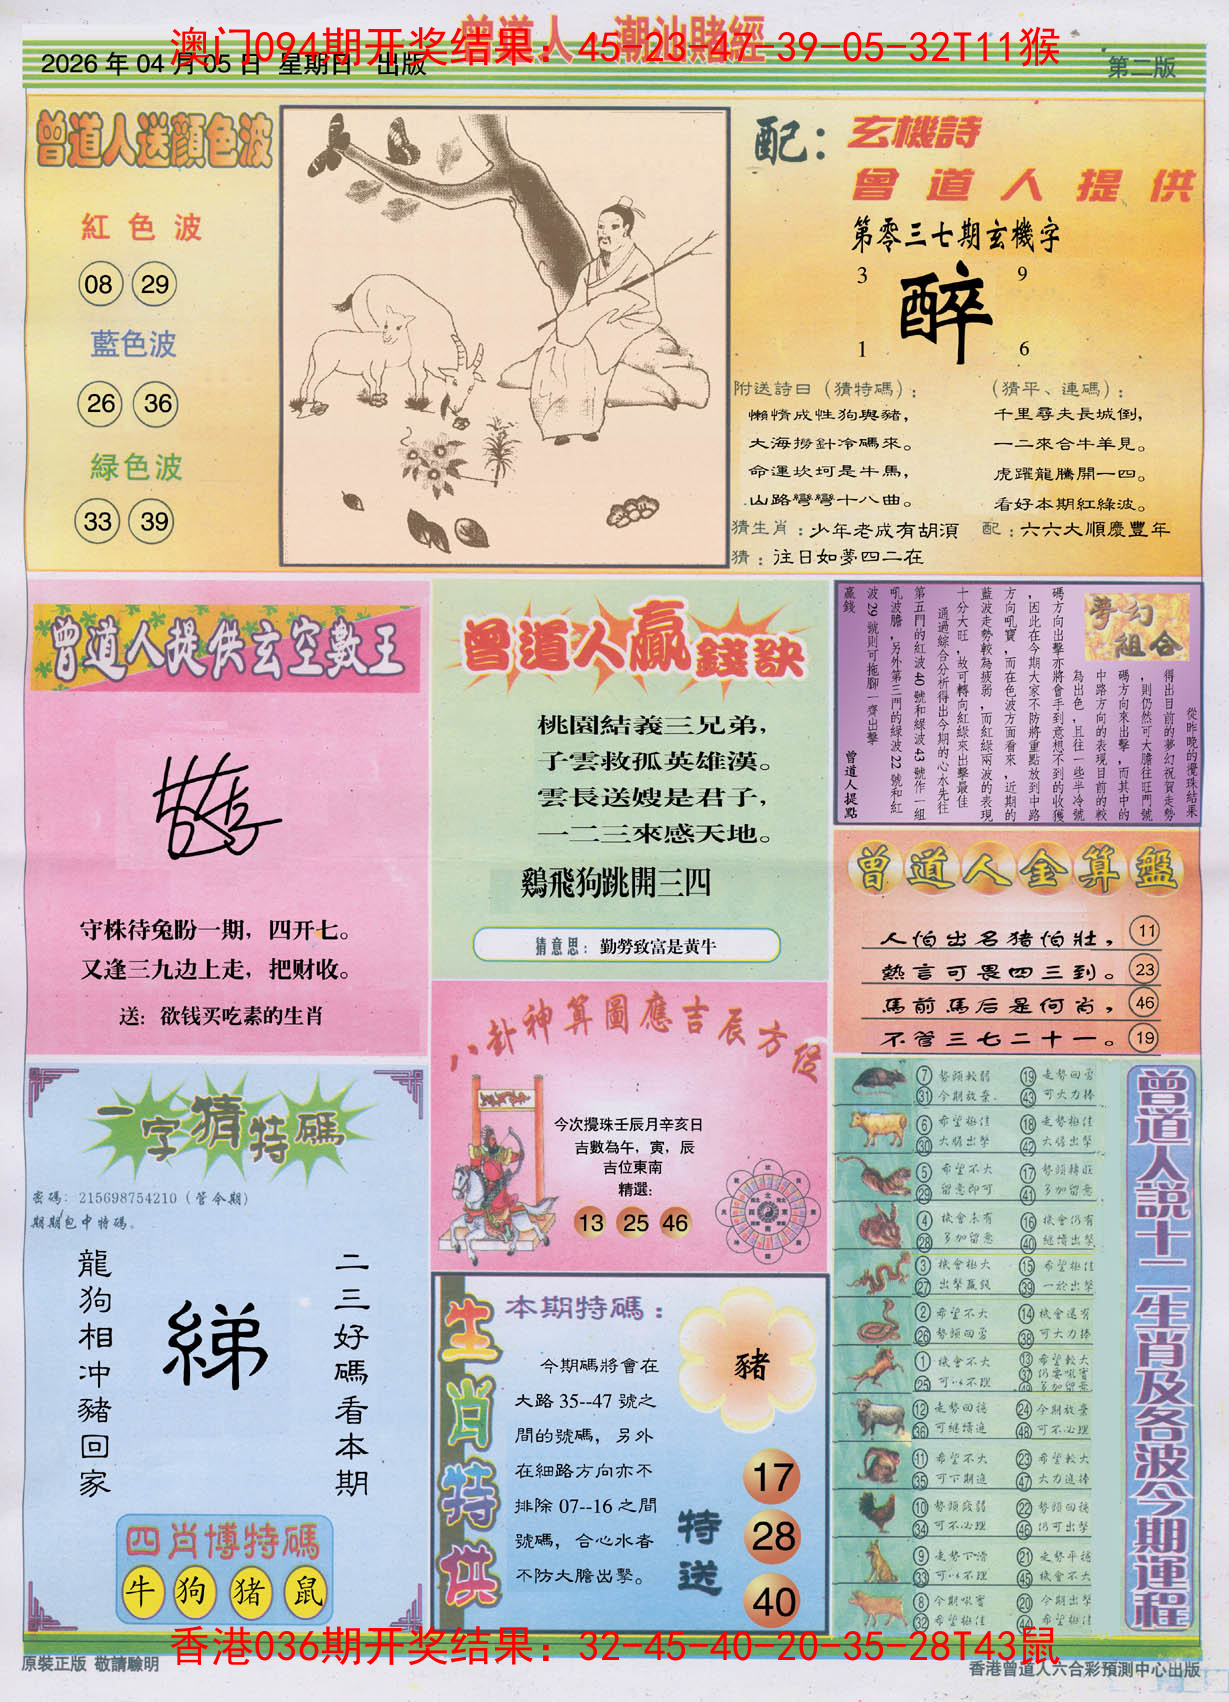 曾道人 潮汕賭經
澳门094期开奖结果：45-23-47-39-05-32T11猴
2026 年 04 月 05 日 星期日 出版
第二版
曾道人送顏色波
紅色波
08 29
藍色波
26 36
緑色波
33 39
配：玄機詩
曾道人提供
第零三七期玄機字
3 9
醉
1 6
附送詩曰（猜特碼）：
懶惰成性狗與豬，
大海撈針冷碼來。
命運坎坷是牛馬，
山路彎彎十八曲。
（猜平、連碼）：
千里尋夫長城倒，
一二來合牛羊見。
虎躍龍騰開一四。
看好本期紅綠波。
猜生肖：少年老成有胡須
配：六六大順慶豐年
猜：往日如夢四二在
曾道人提供玄空數王
守株待兔盼一期，四开七。
又逢三九边上走，把财收。
送：欲钱买吃素的生肖
曾道人贏錢訣
桃園結義三兄弟，
子雲救孤英雄漢。
雲長送嫂是君子，
一二三來感天地。
鷄飛狗跳開三四
猜意思：勤勞致富是黃牛
夢幻組合
從昨晚的攪珠結果
得出目前的夢幻祝賀走勢
，則仍然可大膽往旺門號
碼方向來出擊，而其中的
中路方向的表現目前的較
為出色，且往一些半冷號
碼方向出擊亦將會手到意想不到的收獲
，因此在今期大家不防將重點放到中路
方向吼寶，而在色波方面看來，近期的
藍波走勢較為疲弱，而紅綠兩波的表現
十分大旺，故可轉向紅綠來出擊最佳
通過綜合分析得出今期的心水先往
第五門的紅波 40 號和綠波 43 號作一組
吼波膽，另外第三門的綠波 22 號和紅
波 29 號則可拖腳一齊出擊
贏錢
曾道人提點
曾道人金算盤
人怕出名猪怕壯， 11
熱言可畏四三到。 23
馬前馬后是何肖， 46
不管三七二十一。 19
八卦神算圖應吉辰方位
今次攪珠壬辰月辛亥日
吉數為午，寅，辰
吉位東南
精選:
13 25 46
一字猜特碼
密碼: 215698754210（管令期）
期期包中特碼。
龍狗相冲豬回家
綈
二三好碼看本期
四肖博特碼
牛 狗 猪 鼠
生肖特供
本期特碼：
今期碼將會在
大路 35--47 號之
間的號碼，另外
在細路方向亦不
排除 07--16 之間
號碼，合心水者
不防大膽出擊。
豬
特送
17
28
40
曾道人説十二生肖及各波今期運程
7 勢頭較弱 19 走勢回勇
31 今期放棄 43 可大力捧
6 希望極佳 18 走勢極佳
30 大膽出擊 42 大膽出擊
5 希望不大 17 勢頭轉旺
29 留意即可 41 多加留意
4 機會未有 16 機會仍有
28 多加留意 40 繼續出擊
3 機會極大 15 希望極佳
27 出擊贏錢 39 一於出擊
2 希望不大 14 機會還有
26 勢頭回勇 38 可大力捧
1 機會不大 13 希望較大
25 可以不理 37 仍要吼實
49 多加留意
12 走勢回穩 24 今期放棄
36 可繼續追 48 可不必理
11 希望不大 23 希望較大
35 可下期追 47 大力追捧
10 勢頭疲弱 22 勢頭回穩
34 可不必理 46 仍可出擊
9 走勢下滑 21 走勢平穩
33 可以不理 45 機會不大
8 今期吼實 20 今期出擊
32 希望極佳 44 希望極佳
香港036期开奖结果：32-45-40-20-35-28T43鼠
原裝正版 敬請驗明
香港曾道人六合彩預測中心出版